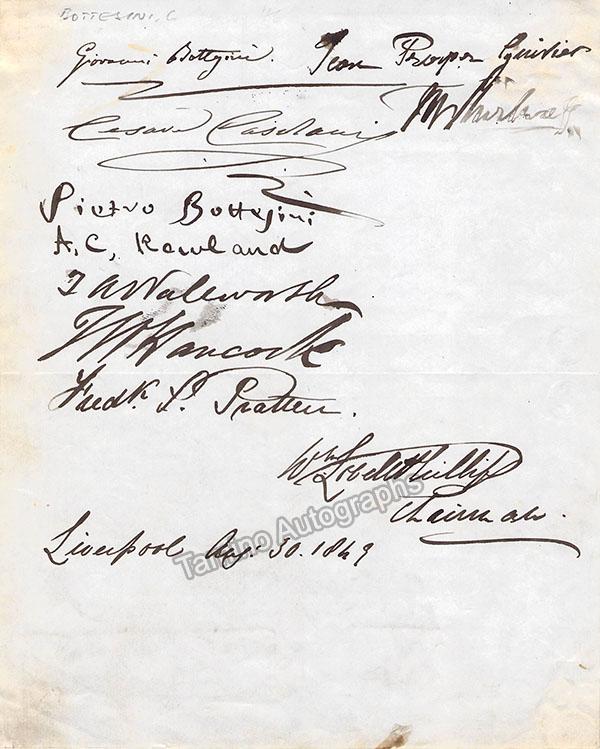 BOTTESINI, C
Giovanni Bottesini. Jean Prosper Guivier
Cesare Casolani
Pietro Bottesini
A, C, Rowland
T A Walworth
Hancock
Fredk. S. Pratten.
Wm Lovell Phillips
Chairman.
Liverpool Aug: 30. 1849
Tamino Autographs